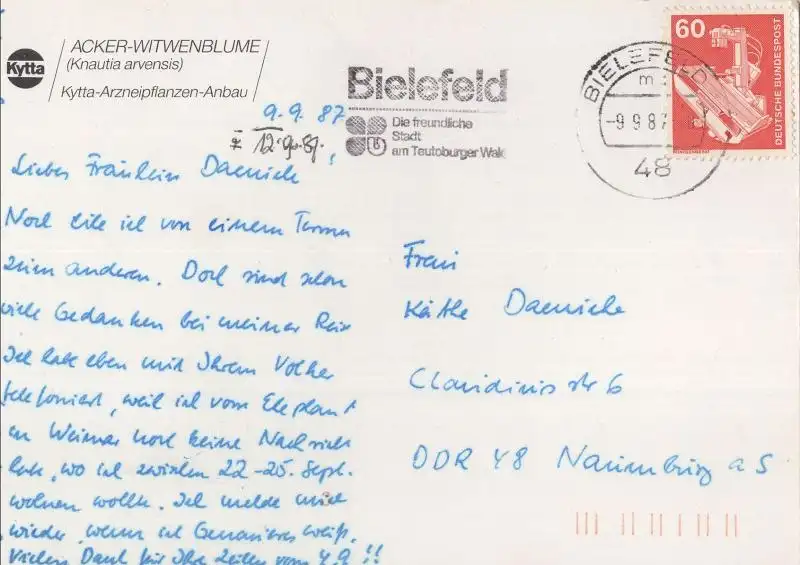 Kytta
ACKER-WITWENBLUME
(Knautia arvensis)
Kytta-Arzneipflanzen-Anbau
Bielefeld
Die freundliche
Stadt
am Teutoburger Wald
BIELEFELD
-9.9.87
48
60
DEUTSCHE BUNDESPOST
9.9.87
12.9.87.
Liebes Fräulein Daeniche!
Noch eile ich von einem Termin
zum anderen. Doch sind schon
viele Gedanken bei meiner Reise
Ich habe eben mit Ihrem Volker
telefoniert, weil ich vom Elephant
in Weimar noch keine Nachricht
habe, wo ich zwischen 22-25. Sept.
wohnen wollte. Ich melde mich
wieder, wenn ich Genaueres weiß.
Vielen Dank für Ihre Zeilen vom 4.9!!
Frau
Käthe Daeniche
Claudiusstr 6
DDR 48 Naumburg a S